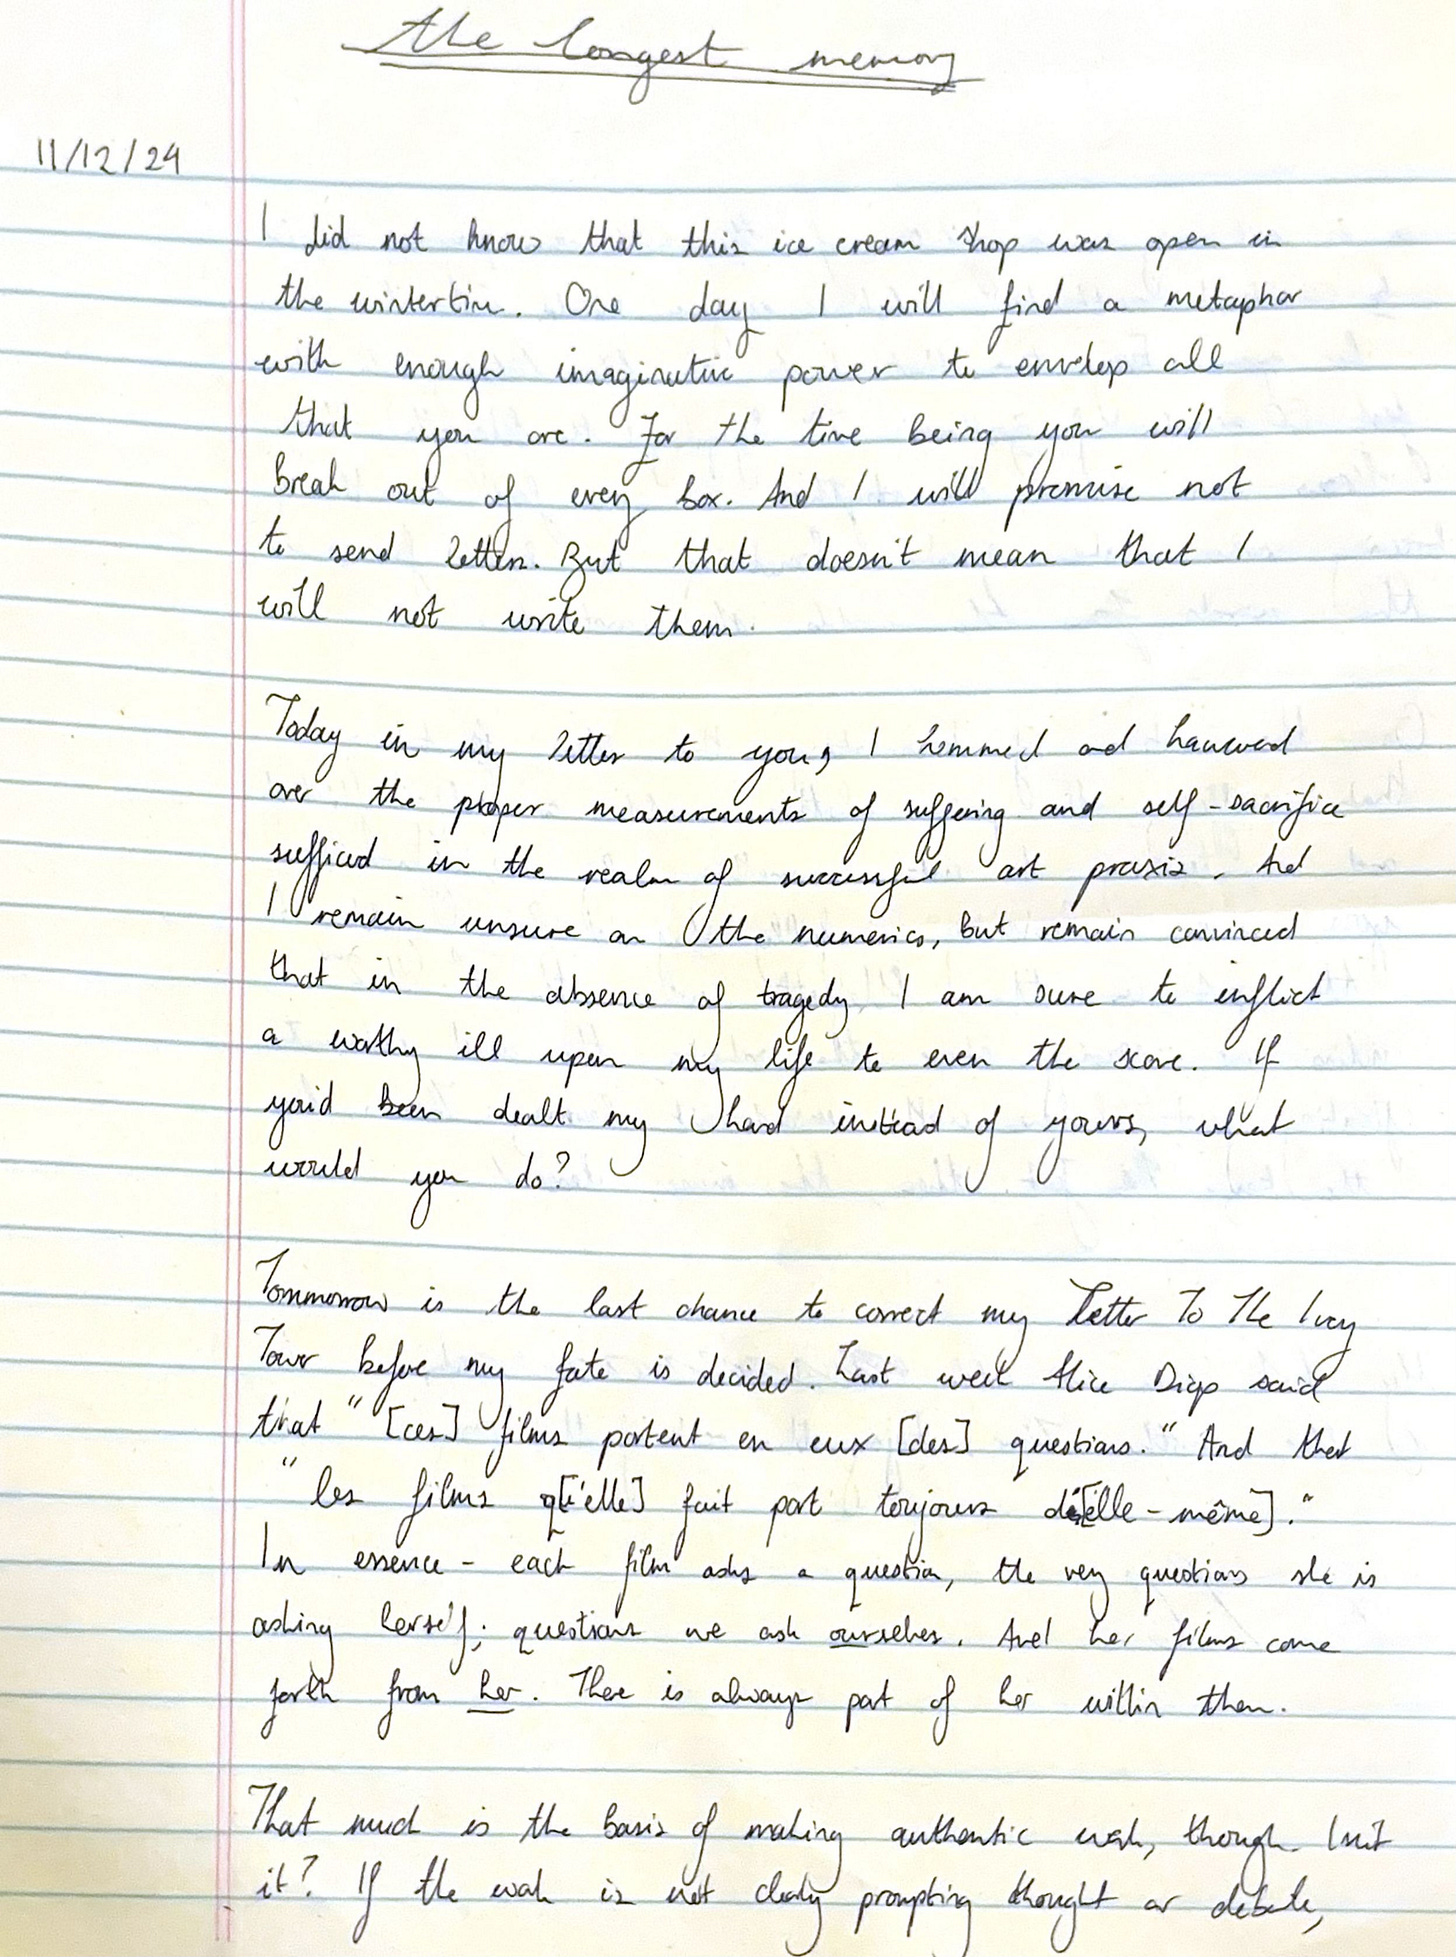 the longest memory
11/12/24
I did not know that this ice cream shop was open in
the wintertime. One day I will find a metaphor
with enough imaginative power to envelop all
that you are. For the time being you will
break out of every box. And I will promise not
to send letters. But that doesn't mean that I
will not write them.
Today in my letter to you, I hemmed and hawwed
over the proper measurements of suffering and self-sacrifice
sufficed in the realm of successful art praxis. And
I remain unsure on the numerics, but remain convinced
that in the absence of tragedy I am sure to inflict
a worthy ill upon my life to even the score. If
you'd been dealt my hand instead of yours, what
would you do?
Tommorrow is the last chance to correct my Letter To The Ivory
Tower before my fate is decided. Last week Alice Diop said
that "[ces] films portent en eux [des] questions." And that
"les films q['elle] fait part toujours d[elle-même]."
In essence - each film asks a question, the very questions she is
asking herself; questions we ask ourselves. And her films come
forth from her. There is always part of her within them.
That much is the basis of making authentic work, though. Isn't
it? If the work is not clearly prompting thought or debate,